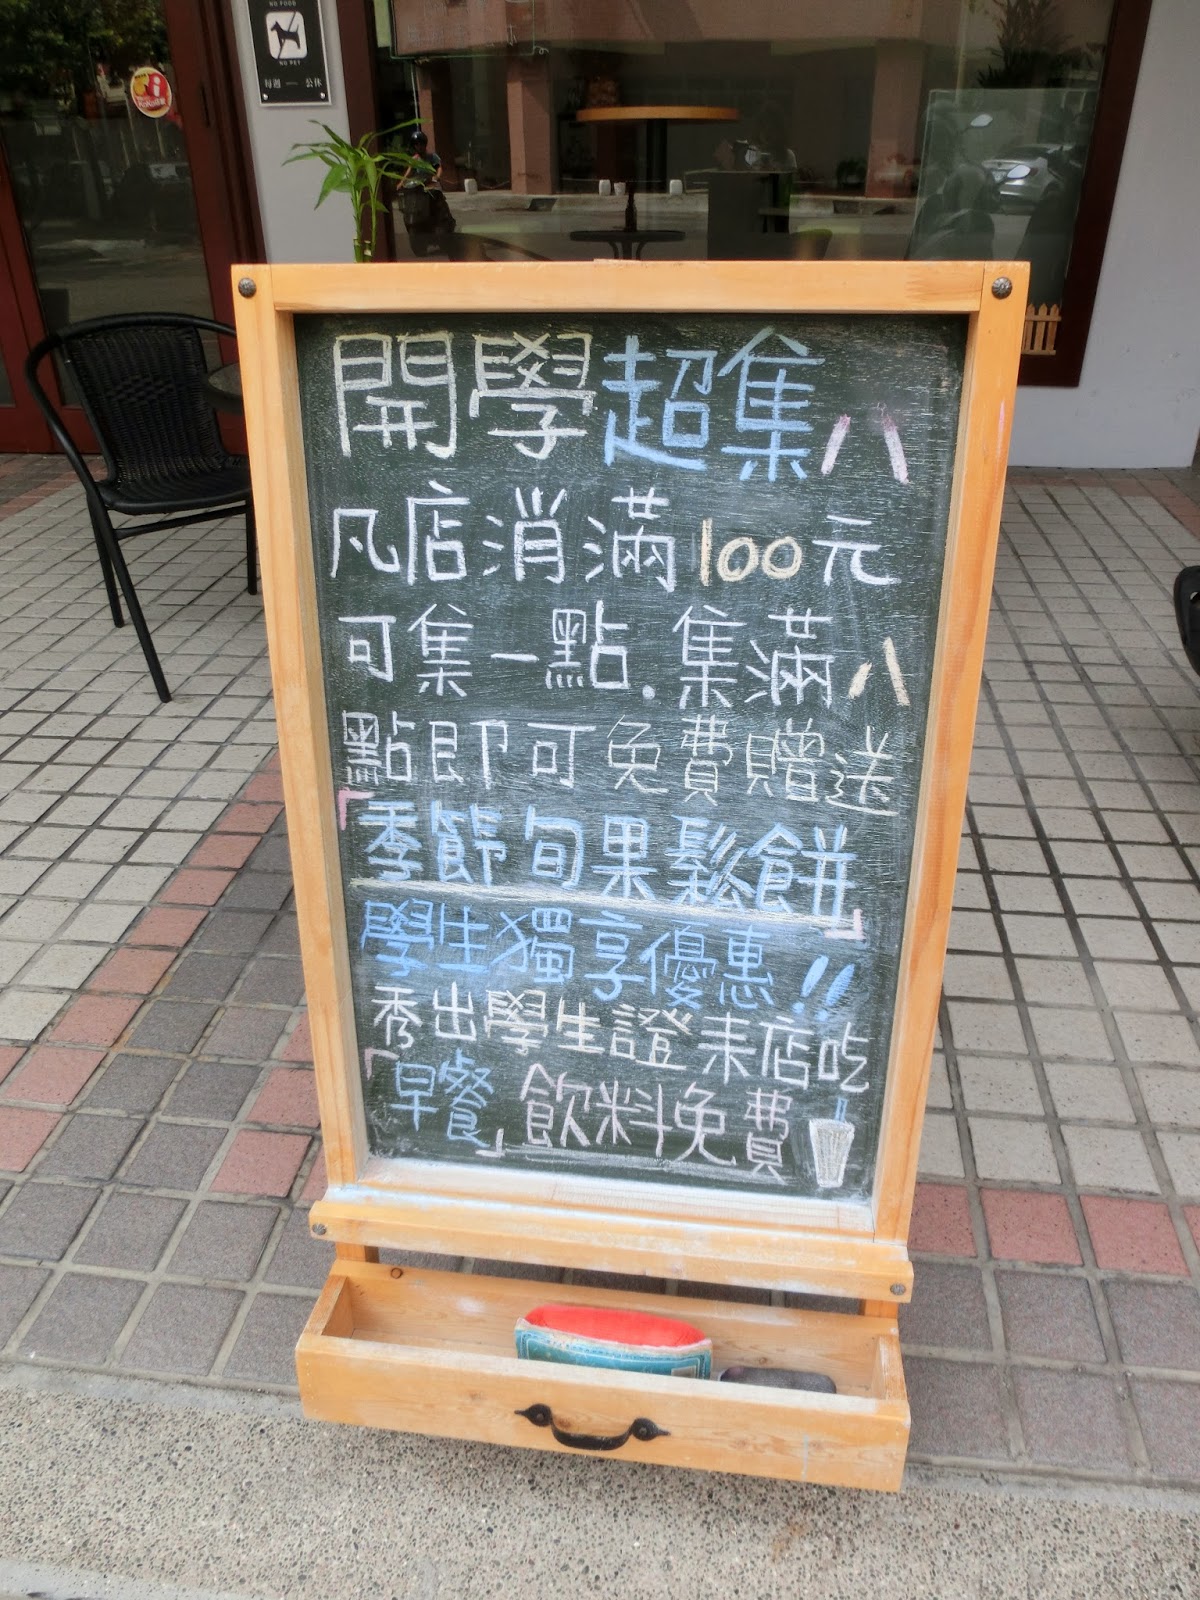 NO FOOD
NO PET
每週 一 公休
開學超集八
凡店消滿100元
可集一點.集滿八
點即可免費贈送
「季節旬果鬆餅」
學生獨享優惠!!
秀出學生證来店吃
「早餐」飲料免費